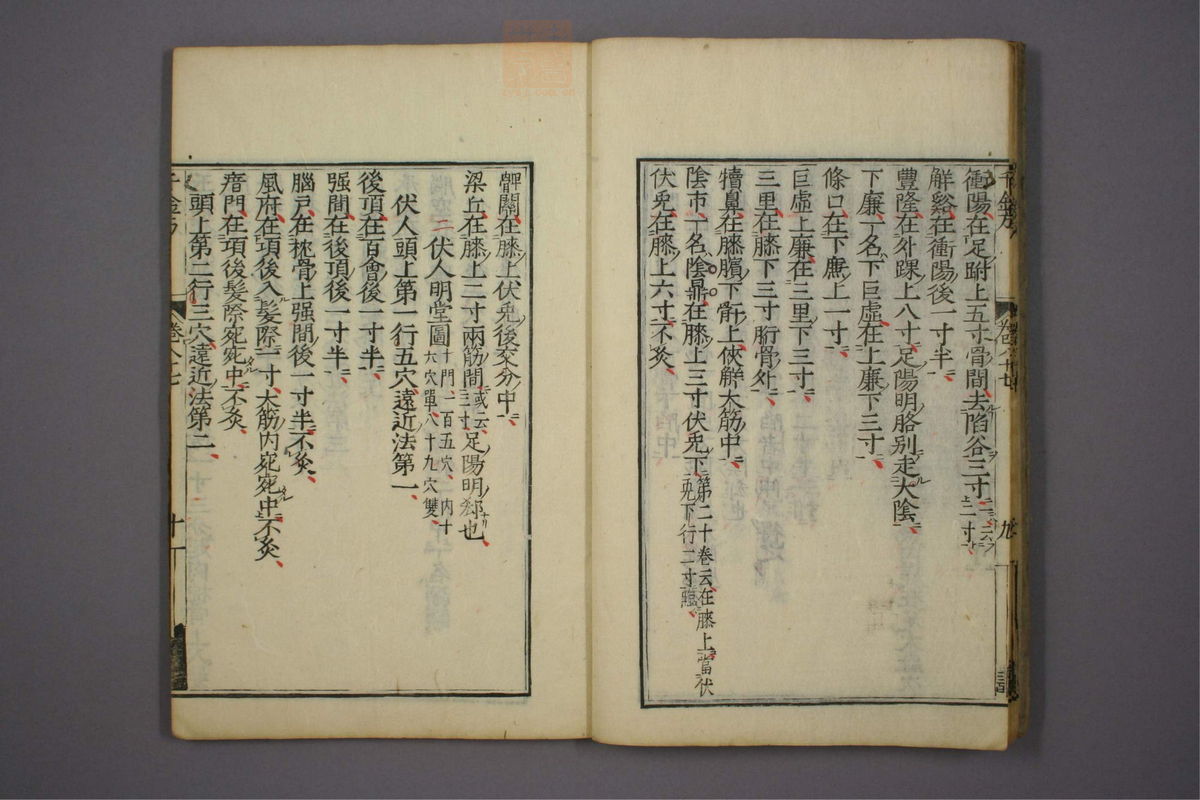 衝陽在足跗上五寸骨間去陷谷三寸一云二寸
解谿在衝陽後一寸半
豐隆在外踝上八寸足陽明胳别走太陰
下廉一名下巨虛在上廉下三寸
條口在下廉上一寸
巨虛上廉在三里下三寸
三里在膝下三寸胻骨外
犢鼻在膝臏下骭上俠解大筋中
陰市一名陰鼎在膝上三寸伏兎下第二十卷云在膝上當伏兎下行二寸臨
伏兎在膝上六寸不灸
髀關在膝上伏兎後交分中
梁丘在膝上二寸兩筋間或云三寸足陽明郄也
伏人明堂圖十門一百五穴内十六穴單八十九穴雙
伏人頭上第一行五穴遠近法第一
後頂在百會後一寸半
强間在後頂後一寸半
腦戸在枕骨上强間後一寸半不灸
風府在項後入髮際一寸大筋内宛宛中不灸
瘖門在項後髮際宛宛中不灸
頭上第二行三穴遠近法第二